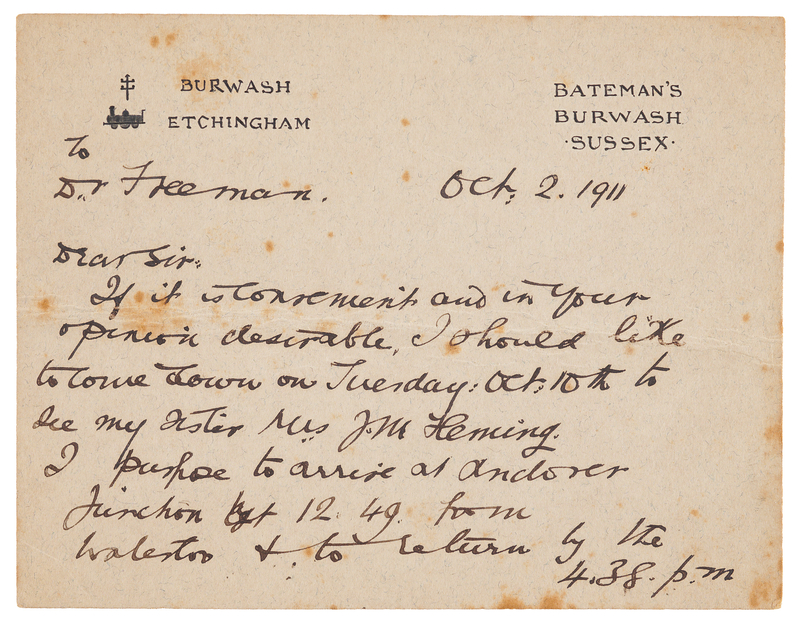 BURWASH
ETCHINGHAM
BATEMAN'S
BURWASH
·SUSSEX·
To
Dr Freeman.
Oct. 2. 1911
Dear Sir:
If it is convenient and in your
opinion desirable, I should like
to come down on Tuesday: Oct: 10th to
see my sister Mrs J.M Fleming.
I purpose to arrive at Andover
Junction at 12 49 from
Waterloo & to return by the
4.38. p.m